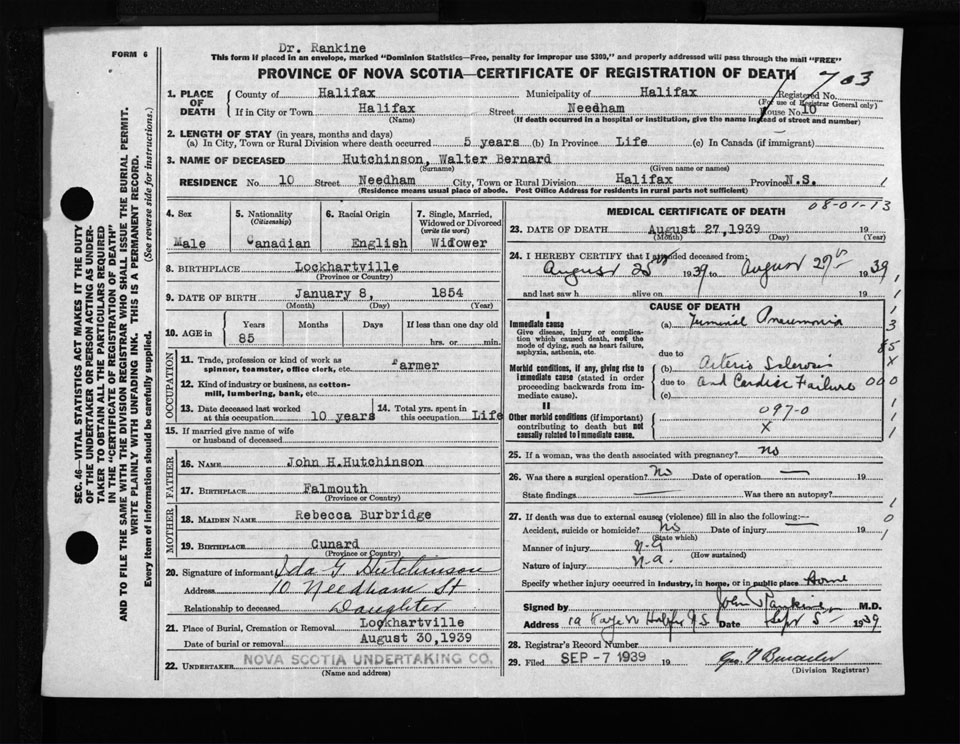 Dr. Rankine
FORM 6
This form if placed in an envelope, marked "Dominion Statistics—Free, penalty for improper use $300," and properly addressed will pass through the mail "FREE"
PROVINCE OF NOVA SCOTIA—CERTIFICATE OF REGISTRATION OF DEATH
703
1. PLACE OF DEATH
County of Halifax Municipality of Halifax Registered No.
(For use of Registrar General only)
If in City or Town Halifax Street Needham House No. 10
(Name) (If death occurred in a hospital or institution, give the name instead of street and number)
2. LENGTH OF STAY (in years, months and days)
(a) In City, Town or Rural Division where death occurred 5 years (b) In Province Life (c) In Canada (if immigrant)
3. NAME OF DECEASED Hutchinson, Walter Bernard
(Surname) (Given name or names)
RESIDENCE No. 10 Street Needham City, Town or Rural Division Halifax Province N.S. 1
(Residence means usual place of abode. Post Office Address for residents in rural parts not sufficient)
4. Sex
Male
5. Nationality
(Citizenship)
Canadian
6. Racial Origin
English
7. Single, Married, Widowed or Divorced
(write the word)
Widower
8. BIRTHPLACE Lockhartville
(Province or Country)
9. DATE OF BIRTH January 8, 1854
(Month) (Day) (Year)
10. AGE in
Years Months Days If less than one day old
85 hrs. or min.
OCCUPATION
11. Trade, profession or kind of work as spinner, teamster, office clerk, etc. Farmer
12. Kind of industry or business, as cotton-mill, lumbering, bank, etc.
13. Date deceased last worked at this occupation 10 years
14. Total yrs. spent in this occupation Life
15. If married give name of wife or husband of deceased
FATHER
16. NAME John H.Hutchinson
17. BIRTHPLACE Falmouth
(Province or Country)
MOTHER
18. MAIDEN NAME Rebecca Burbridge
19. BIRTHPLACE Cunard
(Province or Country)
20. Signature of informant Ida G. Hutchinson
Address 10 Needham St
Relationship to deceased Daughter
21. Place of Burial, Cremation or Removal Lockhartville
Date of burial or removal August 30,1939
22. UNDERTAKER NOVA SCOTIA UNDERTAKING CO.
(Name and address)
MEDICAL CERTIFICATE OF DEATH 08-01-13
23. DATE OF DEATH August 27,1939 19
(Month) (Day) (Year)
24. I HEREBY CERTIFY that I attended deceased from:
August 25th 1939 to August 27th 1939
and last saw h alive on 19
CAUSE OF DEATH
I
Immediate cause
Give disease, injury or complication which caused death, not the mode of dying, such as heart failure, asphyxia, asthenia, etc.
(a) Terminal Pneumonia
due to
Morbid conditions, if any, giving rise to immediate cause (stated in order proceeding backwards from immediate cause).
(b) Arterio Sclerosis
due to and Cardiac Failure
(c)
II
Other morbid conditions (if important) contributing to death but not causally related to immediate cause.
097-0
X
1
1
3
85
X
000
1
1
25. If a woman, was the death associated with pregnancy? no
26. Was there a surgical operation? No Date of operation — 19
State findings — Was there an autopsy?
27. If death was due to external causes (violence) fill in also the following:—
Accident, suicide or homicide? No Date of injury 19
(State which)
Manner of injury n.a
(How sustained)
Nature of injury n.a.
Specify whether injury occurred in industry, in home, or in public place Home
1
0
1
Signed by John Rankine M.D.
Address 19 Kaye St Halifax N.S. Date Sept 5 1939
28. Registrar's Record Number
29. Filed SEP -7 1939 19
(Division Registrar)
SEC. 46—VITAL STATISTICS ACT MAKES IT THE DUTY OF THE UNDERTAKER OR PERSON ACTING AS UNDERTAKER TO OBTAIN ALL THE PARTICULARS REQUIRED IN THE "CERTIFICATE OF REGISTRATION OF DEATH"
AND TO FILE THE SAME WITH THE DIVISION REGISTRAR WHO SHALL ISSUE THE BURIAL PERMIT.
WRITE PLAINLY WITH UNFADING INK. THIS IS A PERMANENT RECORD.
Every item of information should be carefully supplied. (See reverse side for instructions.)